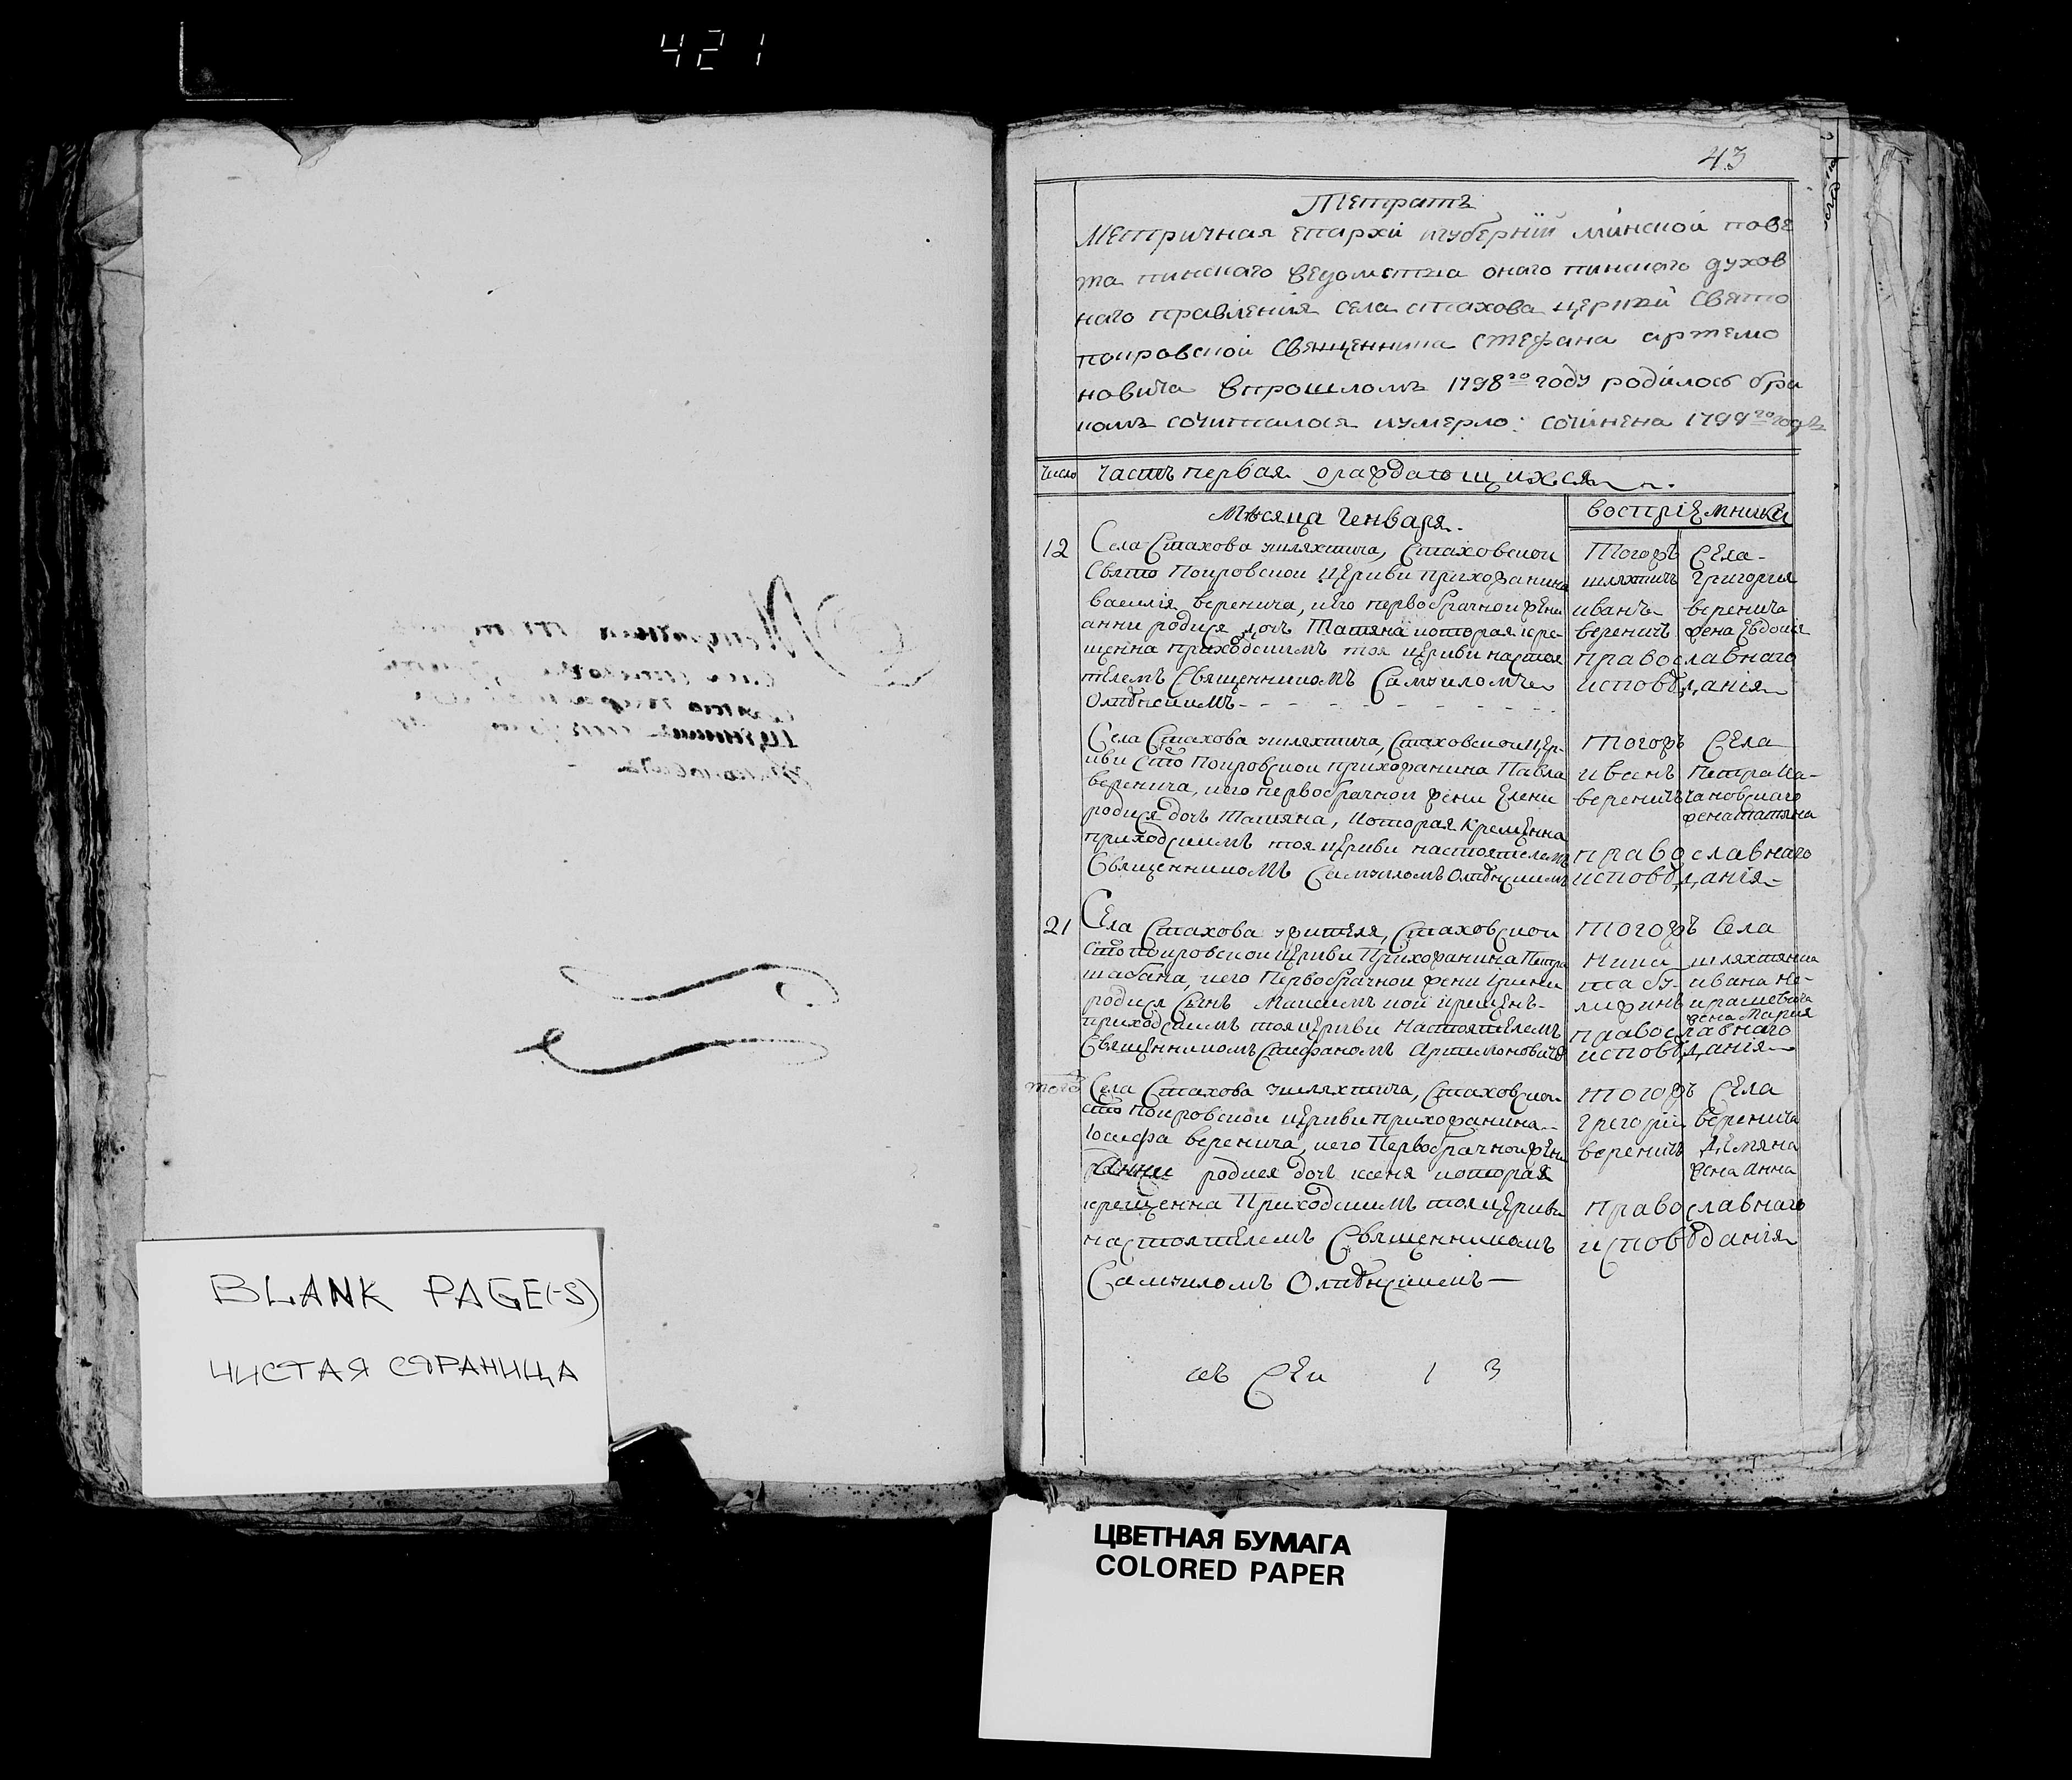 421
43
Тетрать
Метричная епархіи игуберніи минской пове
та пинскаго ведомства онаго пинскаго духов
наго правления села стахова церкви свято
покровской священника стефана артемо
новича впрошломъ 1798го году родилось бра
комъ сочиталося иумерло: сочинена 1799го года
число часть первая ораждающихся
Мѣсяца Генваря.
воспріемники
12 Села Стахова ушляхтича, Стаховской
Свято Покровской Церкви прихожанина
василія веренича, иего первобрачной жени
анни родися дочь Татяна которая кре-
щенна приходскимъ тоя церкви настоя
телемъ Священникомъ Самуиломъ
Олевскимъ
Тогожъ Села
шляхтичъ Григория
иванъ веренича
вереничъ жена Евдокия
православнаго
исповѣданія
Села Стахова ушляхтича, Стаховской Цер-
кви Сто Покровской прихожанина Павла
веренича, иего первобрачной жени Елени
родися дочь Татяна, которая крещенна
приходскимъ тоя церкви настоятелемъ
Священникомъ Самуиломъ
тогожъ Села
вереничъ
жена татяна
православнаго
исповѣданія
21 Села Стахова ужителя, Стаховской
Сто покровской Церкви Прихожанина Петра
иего Первобрачной жени Ирини
родися Синъ Максимъ кой крищенъ
приходскимъ тоя церкви Настоятелемъ
Священникомъ Стефаномъ Артимоновичемъ
тогожъ Села
шляхтянка
ивана
жена Мария
православнаго
исповѣданія
Села Стахова ушляхтича, Стаховской
сто покровской церкви прихожанина
Іосифа веренича, иего Первобрачной жени
Анни родися дочь ксеня которая
крещенна Приходскимъ тоя церкви
настоятелемъ Священникомъ
Самуиломъ
тогожъ Села
Григорій веренича
вереничъ Демяна
жена Анна
православнаго
исповѣданія
1 3
BLANK PAGE(-S)
ЧИСТАЯ СТРАНИЦА
ЦВЕТНАЯ БУМАГА
COLORED PAPER